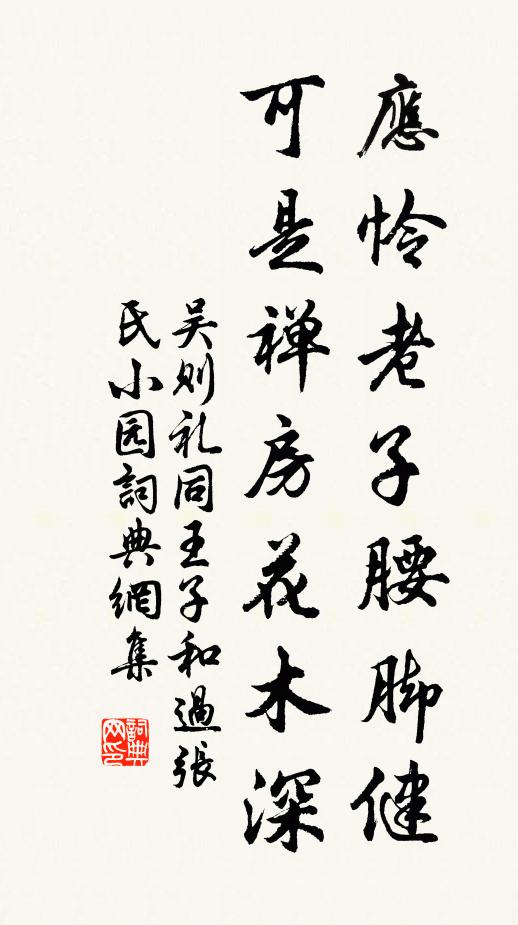 應怜老子腰脚健
可是禅房花木深
吴则礼同王子和過張
氏小园詞典網集
詞典網印